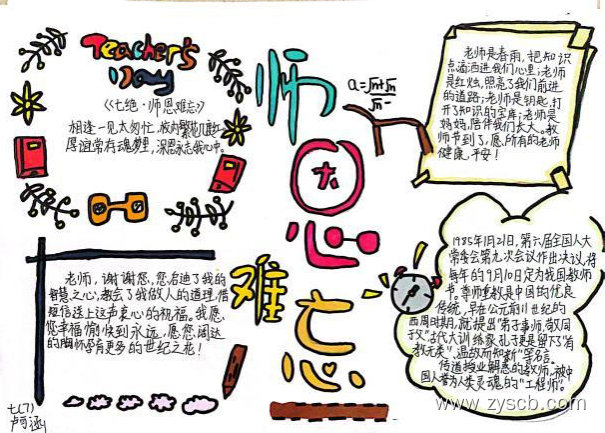 Teacher's
Day
《七绝·师恩难忘》
相逢一见太匆忙,校内繁花几度红
愿谊常有魂梦里,深恩永志我心中。
师恩难忘
老师是春雨,把知识
点滴洒进我们心里;老师
是红烛,照亮了我们前进
的道路;老师是钥匙,打
开了知识的宝库;老师是
妈妈,陪伴我们长大。教
师节到了,愿所有的老师
健康,平安!
老师,谢谢您,您启迪了我的
智慧之心,教会了我做人的道理,借
短信送上这声衷心的祝福。我愿
您幸福愉快到永远,愿您阔达
的胸怀孕育更多的世纪之花!
1985年1月21日,第六届全国人大
常委会第九次会议作出决议,将
每年的9月10日定为我国教师
节。尊师重教是中国的优良
传统,早在公元前11世纪的
西周时期,就提出"弟子事师,敬同
于父"古代大训练家孔子更是留下了"有
教无类","温故而知新"等名言。
传道授业解惑的教师,被中
国人誉为人类灵魂的"工程师"。
七(7)
www.zyscb.com